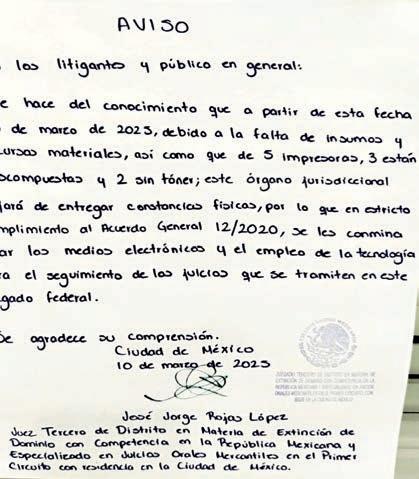 AVISO
los litigantes y público en general:
e hace del conocimiento que a partir de esta fecha
de marzo de 2025, debido a la falta de insumos y
cursos materiales, así como que de 5 impresoras, 3 están
scompuestas y 2 sin tóner; este órgano jurisdiccional
jará de entregar constancias físicas, por lo que en estricto
mplimiento al Acuerdo General 12/2020, se les conmina
ar los medios electrónicos y el empleo de la tecnología
ra el seguimiento de los juicios que se tramiten en este
gado federal.
Se agradece su comprensión.
Ciudad de México
10 de marzo de 2025
JUZGADO TERCERO DE DISTRITO EN MATERIA DE
EXTINCIÓN DE DOMINIO CON COMPETENCIA EN LA
REPÚBLICA MEXICANA Y ESPECIALIZADO EN JUICIOS
ORALES MERCANTILES EN EL PRIMER CIRCUITO, CON
SEDE EN LA CIUDAD DE MÉXICO
José Jorge Rojas López
Juez Tercero de Distrito en Materia de Extinción de
Dominio con Competencia en la República Mexicana y
Especializado en Juicios Orales Mercantiles en el Primer
Circuito con residencia en la Ciudad de México.